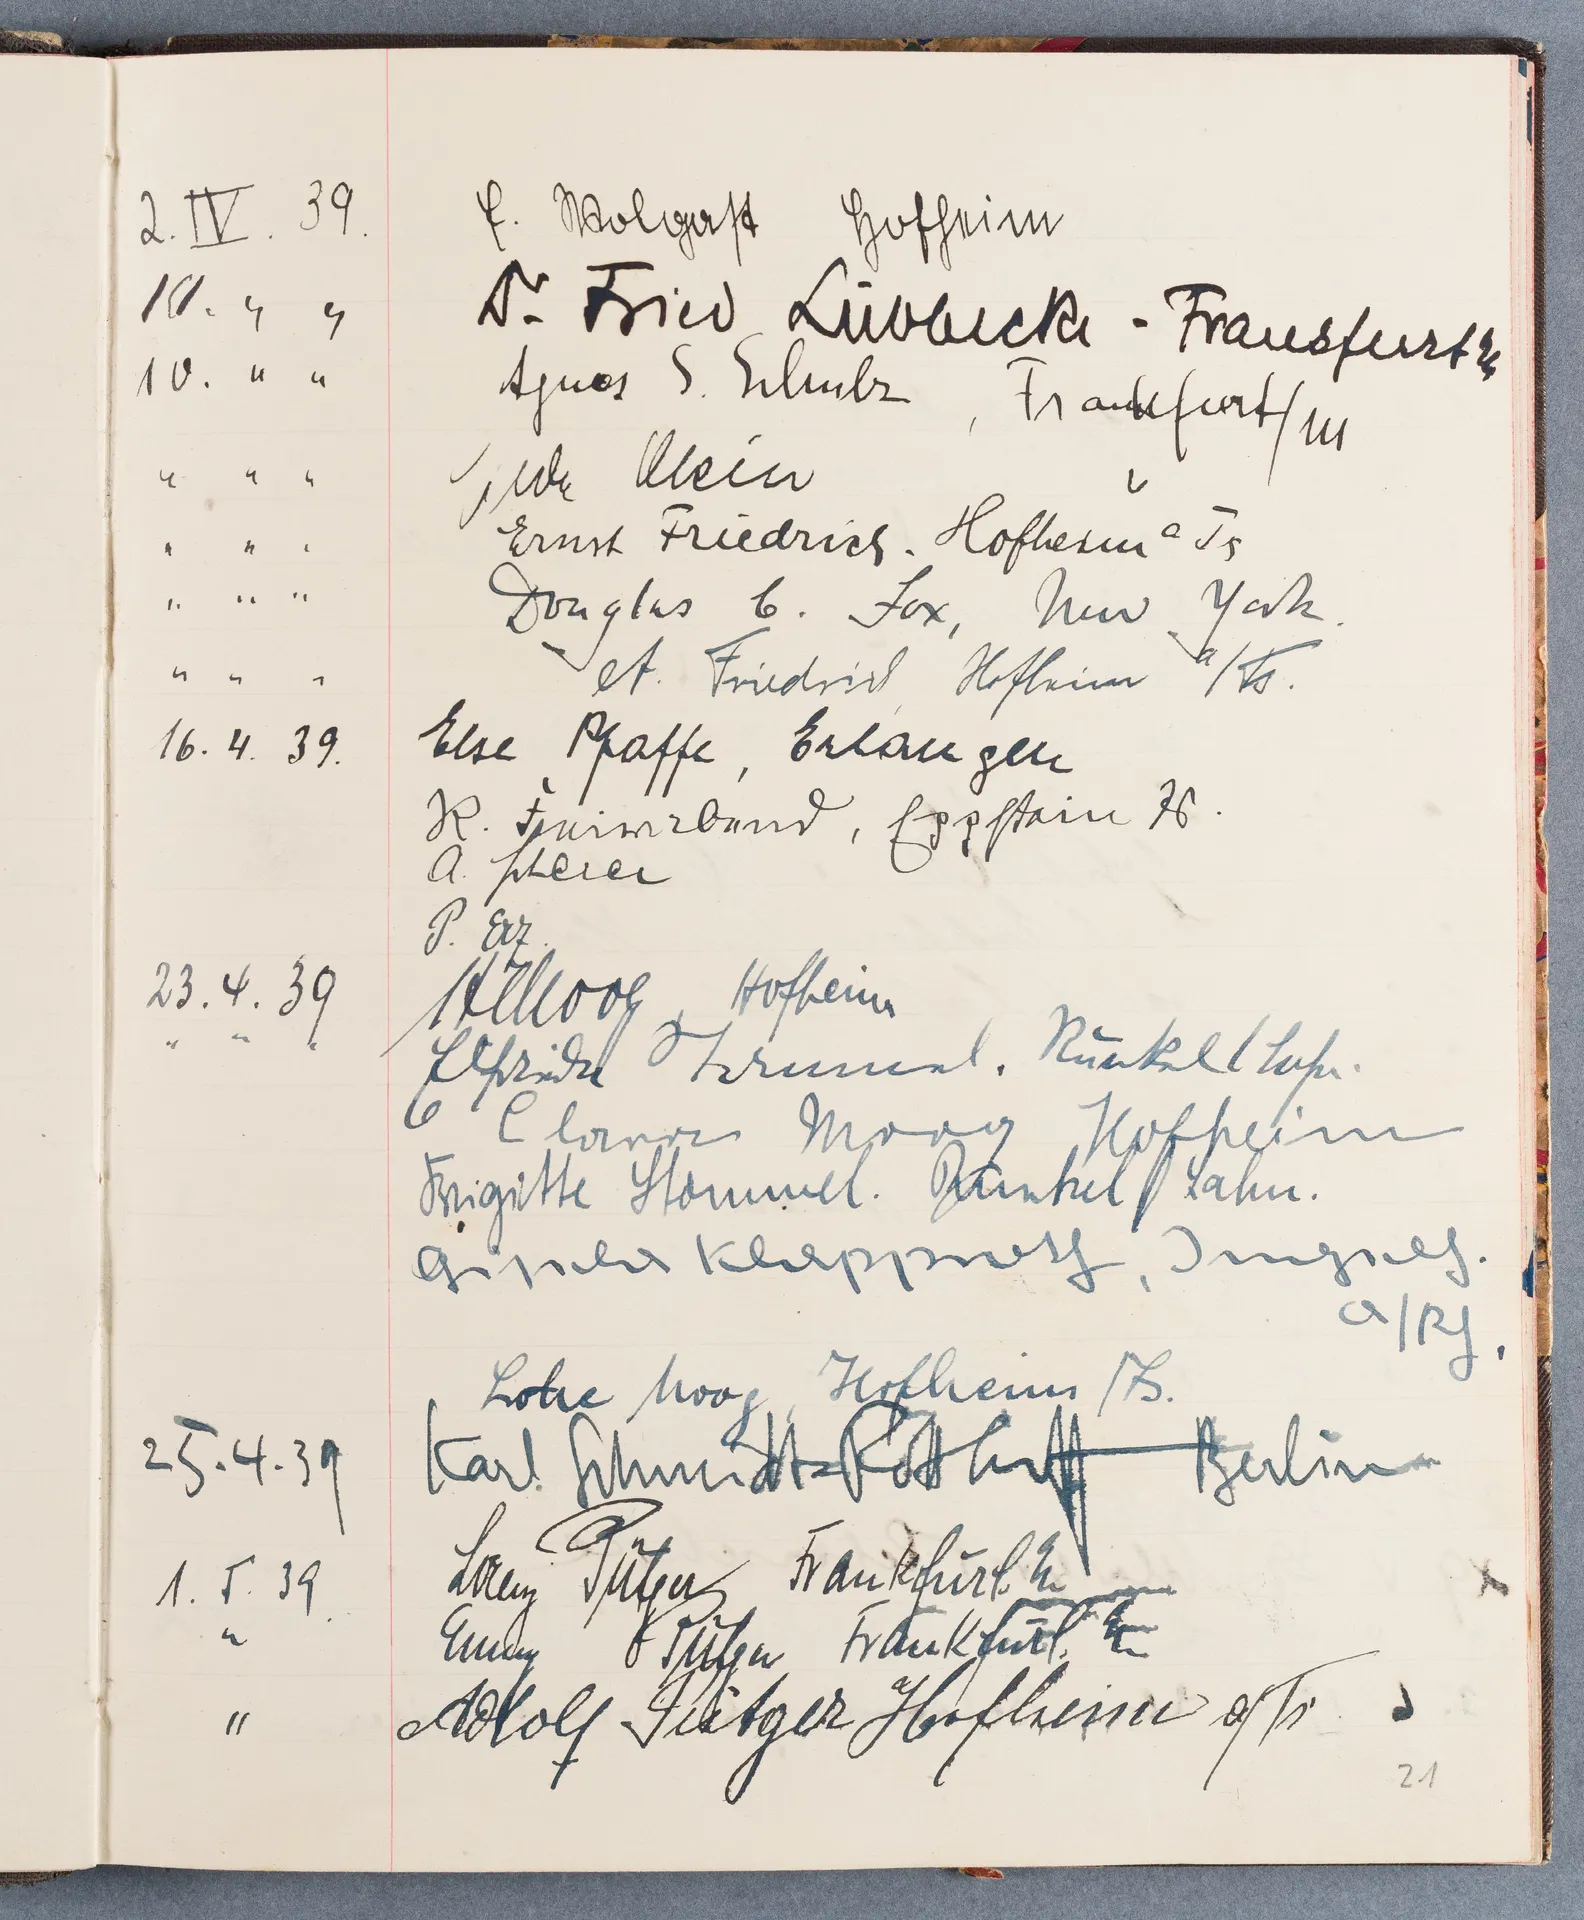 2. IV. 39. E. Wolgast Hofheim
10. " " Dr. Fried Lübbecke - Frankfurt
10. " " Agnes S. Schulz, Frankfurt/M
" " " Klein "
" " " Ernst Friedrich. Hofheim a Ts
" " " Douglas C. Fox, New York.
" " " et. Friedrich Hofheim a/Ts.
16. 4. 39. Else Pfaffe, Erlangen
K. Eppstein
A. Scherer
P. Erz.
23. 4. 39 Moog, Hofheim
" " " Elfriede Runkel/Lahn.
Clara Moog Hofheim
Brigitte Stommel. Runkel/Lahn.
Gisela Klapproth,
a/Rh.
Moog, Hofheim/Ts.
25. 4. 39 Karl Schmidt-Rottluff Berlin
1. 5. 39 Lorenz Pütger Frankfurt.
" Emmy Pütger Frankfurt.
" Adolf Pütger Hofheim a/Ts
21